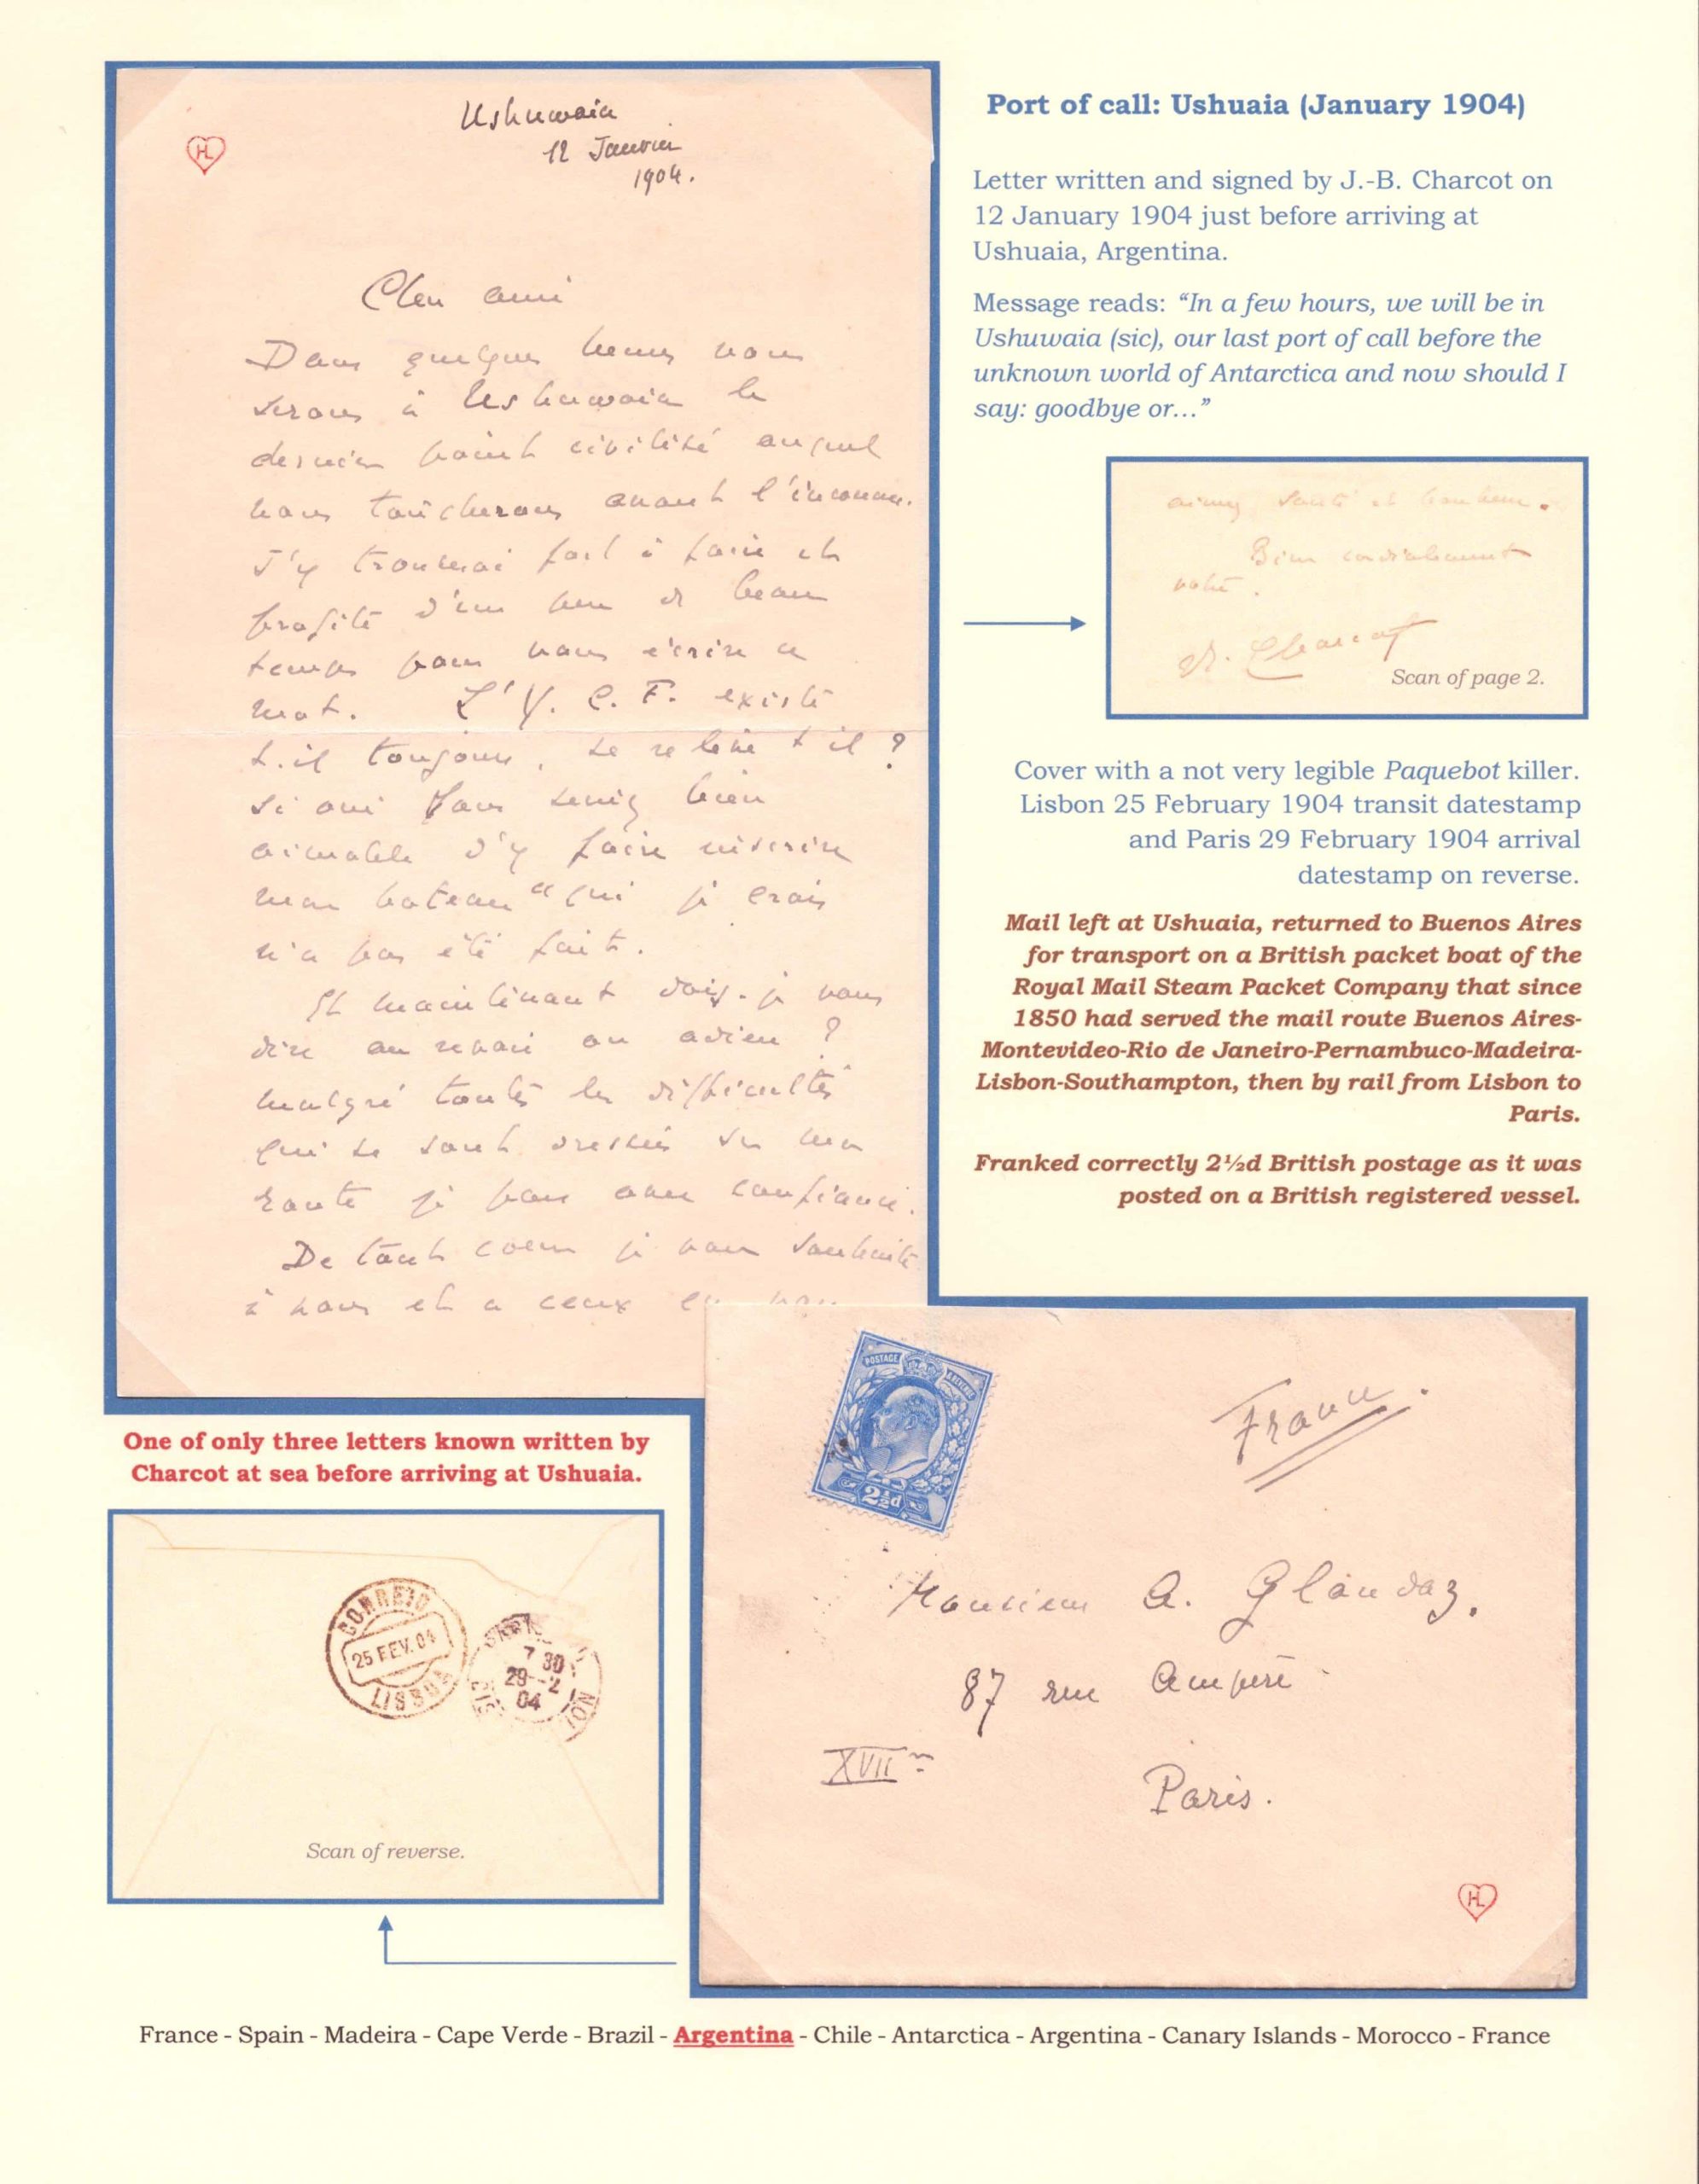 Ushuwaia
12 Janvier
1904.
HL
Cher ami
Dans quelques heures nous
serons à Ushuwaia le
dernier point civilisé auquel
nous toucherons avant l'inconnu.
J'y trouverai fort à faire et
profite d'un peu de beau
temps pour vous écrire ce
mot. L'Y. C. F. existe
t.il toujours, se relève t il ?
Si oui vous seriez bien
aimable d'y faire inscrire
mon bateau ce qui je crois
n'a pas été fait.
Et maintenant dois-je vous
dire au revoir ou adieu ?
malgré toutes les difficultés
qui se sont dressées sur ma
route je pars avec confiance.
De tout coeur je vous souhaite
à vous et a ceux
Port of call: Ushuaia (January 1904)
Letter written and signed by J.-B. Charcot on
12 January 1904 just before arriving at
Ushuaia, Argentina.
Message reads: “In a few hours, we will be in
Ushuwaia (sic), our last port of call before the
unknown world of Antarctica and now should I
say: goodbye or…”
aimez santé et bonheur.
Bien cordialement
votre.
Charcot
Scan of page 2.
Cover with a not very legible Paquebot killer.
Lisbon 25 February 1904 transit datestamp
and Paris 29 February 1904 arrival
datestamp on reverse.
Mail left at Ushuaia, returned to Buenos Aires
for transport on a British packet boat of the
Royal Mail Steam Packet Company that since
1850 had served the mail route Buenos Aires-
Montevideo-Rio de Janeiro-Pernambuco-Madeira-
Lisbon-Southampton, then by rail from Lisbon to
Paris.
Franked correctly 2½d British postage as it was
posted on a British registered vessel.
One of only three letters known written by
Charcot at sea before arriving at Ushuaia.
CORREIO
25 FEV. 04
LISBOA
7 30
29-2
04
Scan of reverse.
POSTAGE REVENUE
2½d
France.
Monsieur A. Glandaz.
87 rue Ampère
XVIIe
Paris.
HL
France - Spain - Madeira - Cape Verde - Brazil - Argentina - Chile - Antarctica - Argentina - Canary Islands - Morocco - France